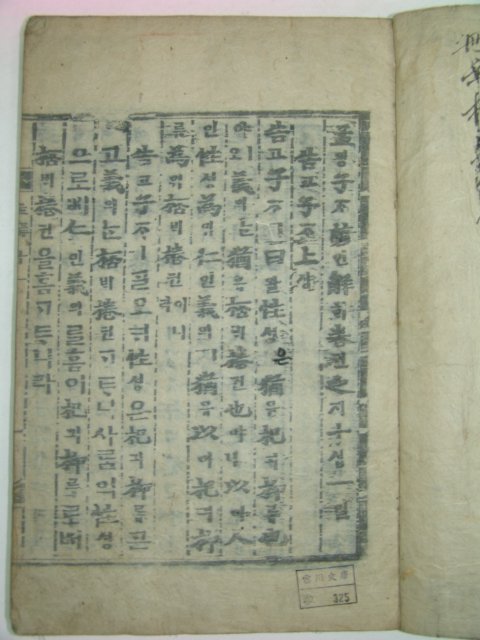 孟ᄆᆡᆼ子ᄌᆞ諺언解ᄒᆡ卷권之지十십一일
告고子ᄌᆞ上샹
告고子ᄌᆞㅣ曰왈性셩은猶유杞긔柳류也
야ㅣ오義의ᄂᆞᆫ猶유桮ᄇᆡ棬권也야ㅣ니以이人
인性셩爲위仁인義의ㅣ猶유以이杞긔柳
류爲위桮ᄇᆡ棬권이니라
告고子ᄌᆞㅣᄀᆞᆯ오ᄃᆡ性셩은杞긔柳류ᄀᆞᆮ
고義의ᄂᆞᆫ桮ᄇᆡ棬권ᄀᆞᄐᆞ니사ᄅᆞᆷ의性셩
으로ᄡᅥ仁인義의ᄅᆞᆯᄒᆞᆷ이杞긔柳류로ᄡᅥ
桮ᄇᆡ棬권을ᄒᆞᆷᄀᆞᄐᆞ니라
325